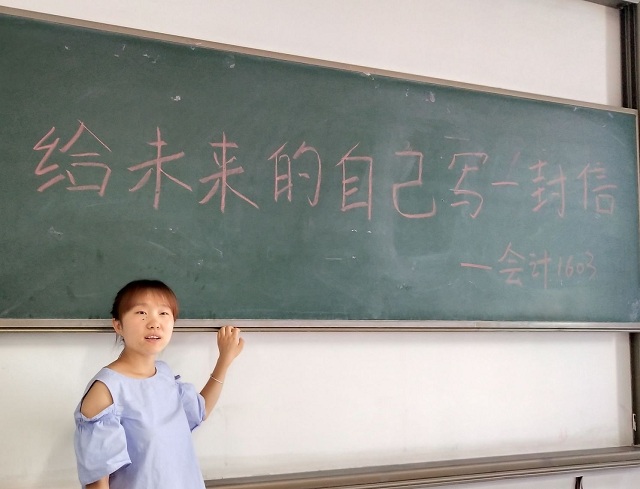 给未来的自己写一封信
—会计1603